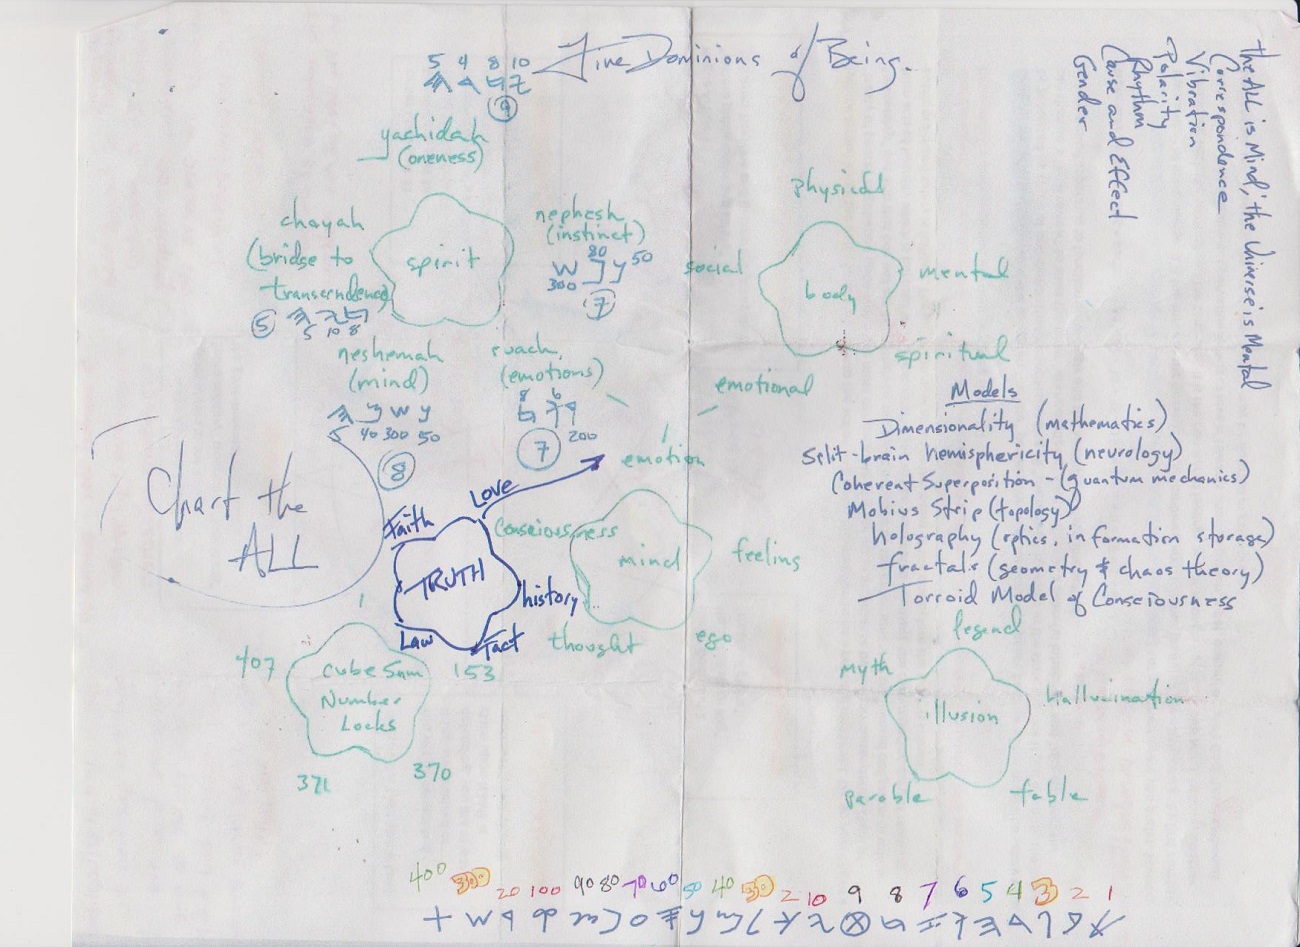 Five Dominions of Being.
5 4 8 10
9
yachidah
(oneness)
chayah
(bridge to
transcendence)
5
5 10 8
nephesh
(instinct)
80
50
300
7
spirit
neshemah
(mind)
5 40 300 50
8
ruach
(emotions)
8 6
200
7
physical
social
mental
body
spiritual
emotional
The ALL is Mind; the Universe is Mental
Correspondence
Vibration
Polarity
Rhythm
Cause and Effect
Gender
Models
Dimensionality (mathematics)
Split-brain hemisphericity (neurology)
Coherent Superposition - (quantum mechanics)
Mobius Strip (topology)
holography (optics, information storage)
fractals (geometry & chaos theory)
Torroid Model of Consciousness
Chart the
ALL
Love
Faith
TRUTH
history
Law
Fact
emotion
Consciousness
mind
feeling
thought
ego
1
407
153
Cube Sum
Number
Locks
371
370
legend
myth
hallucination
illusion
parable
fable
400 300 100 90 80 70 60 50 40 10 9 8 7 6 5 4 3 2 1